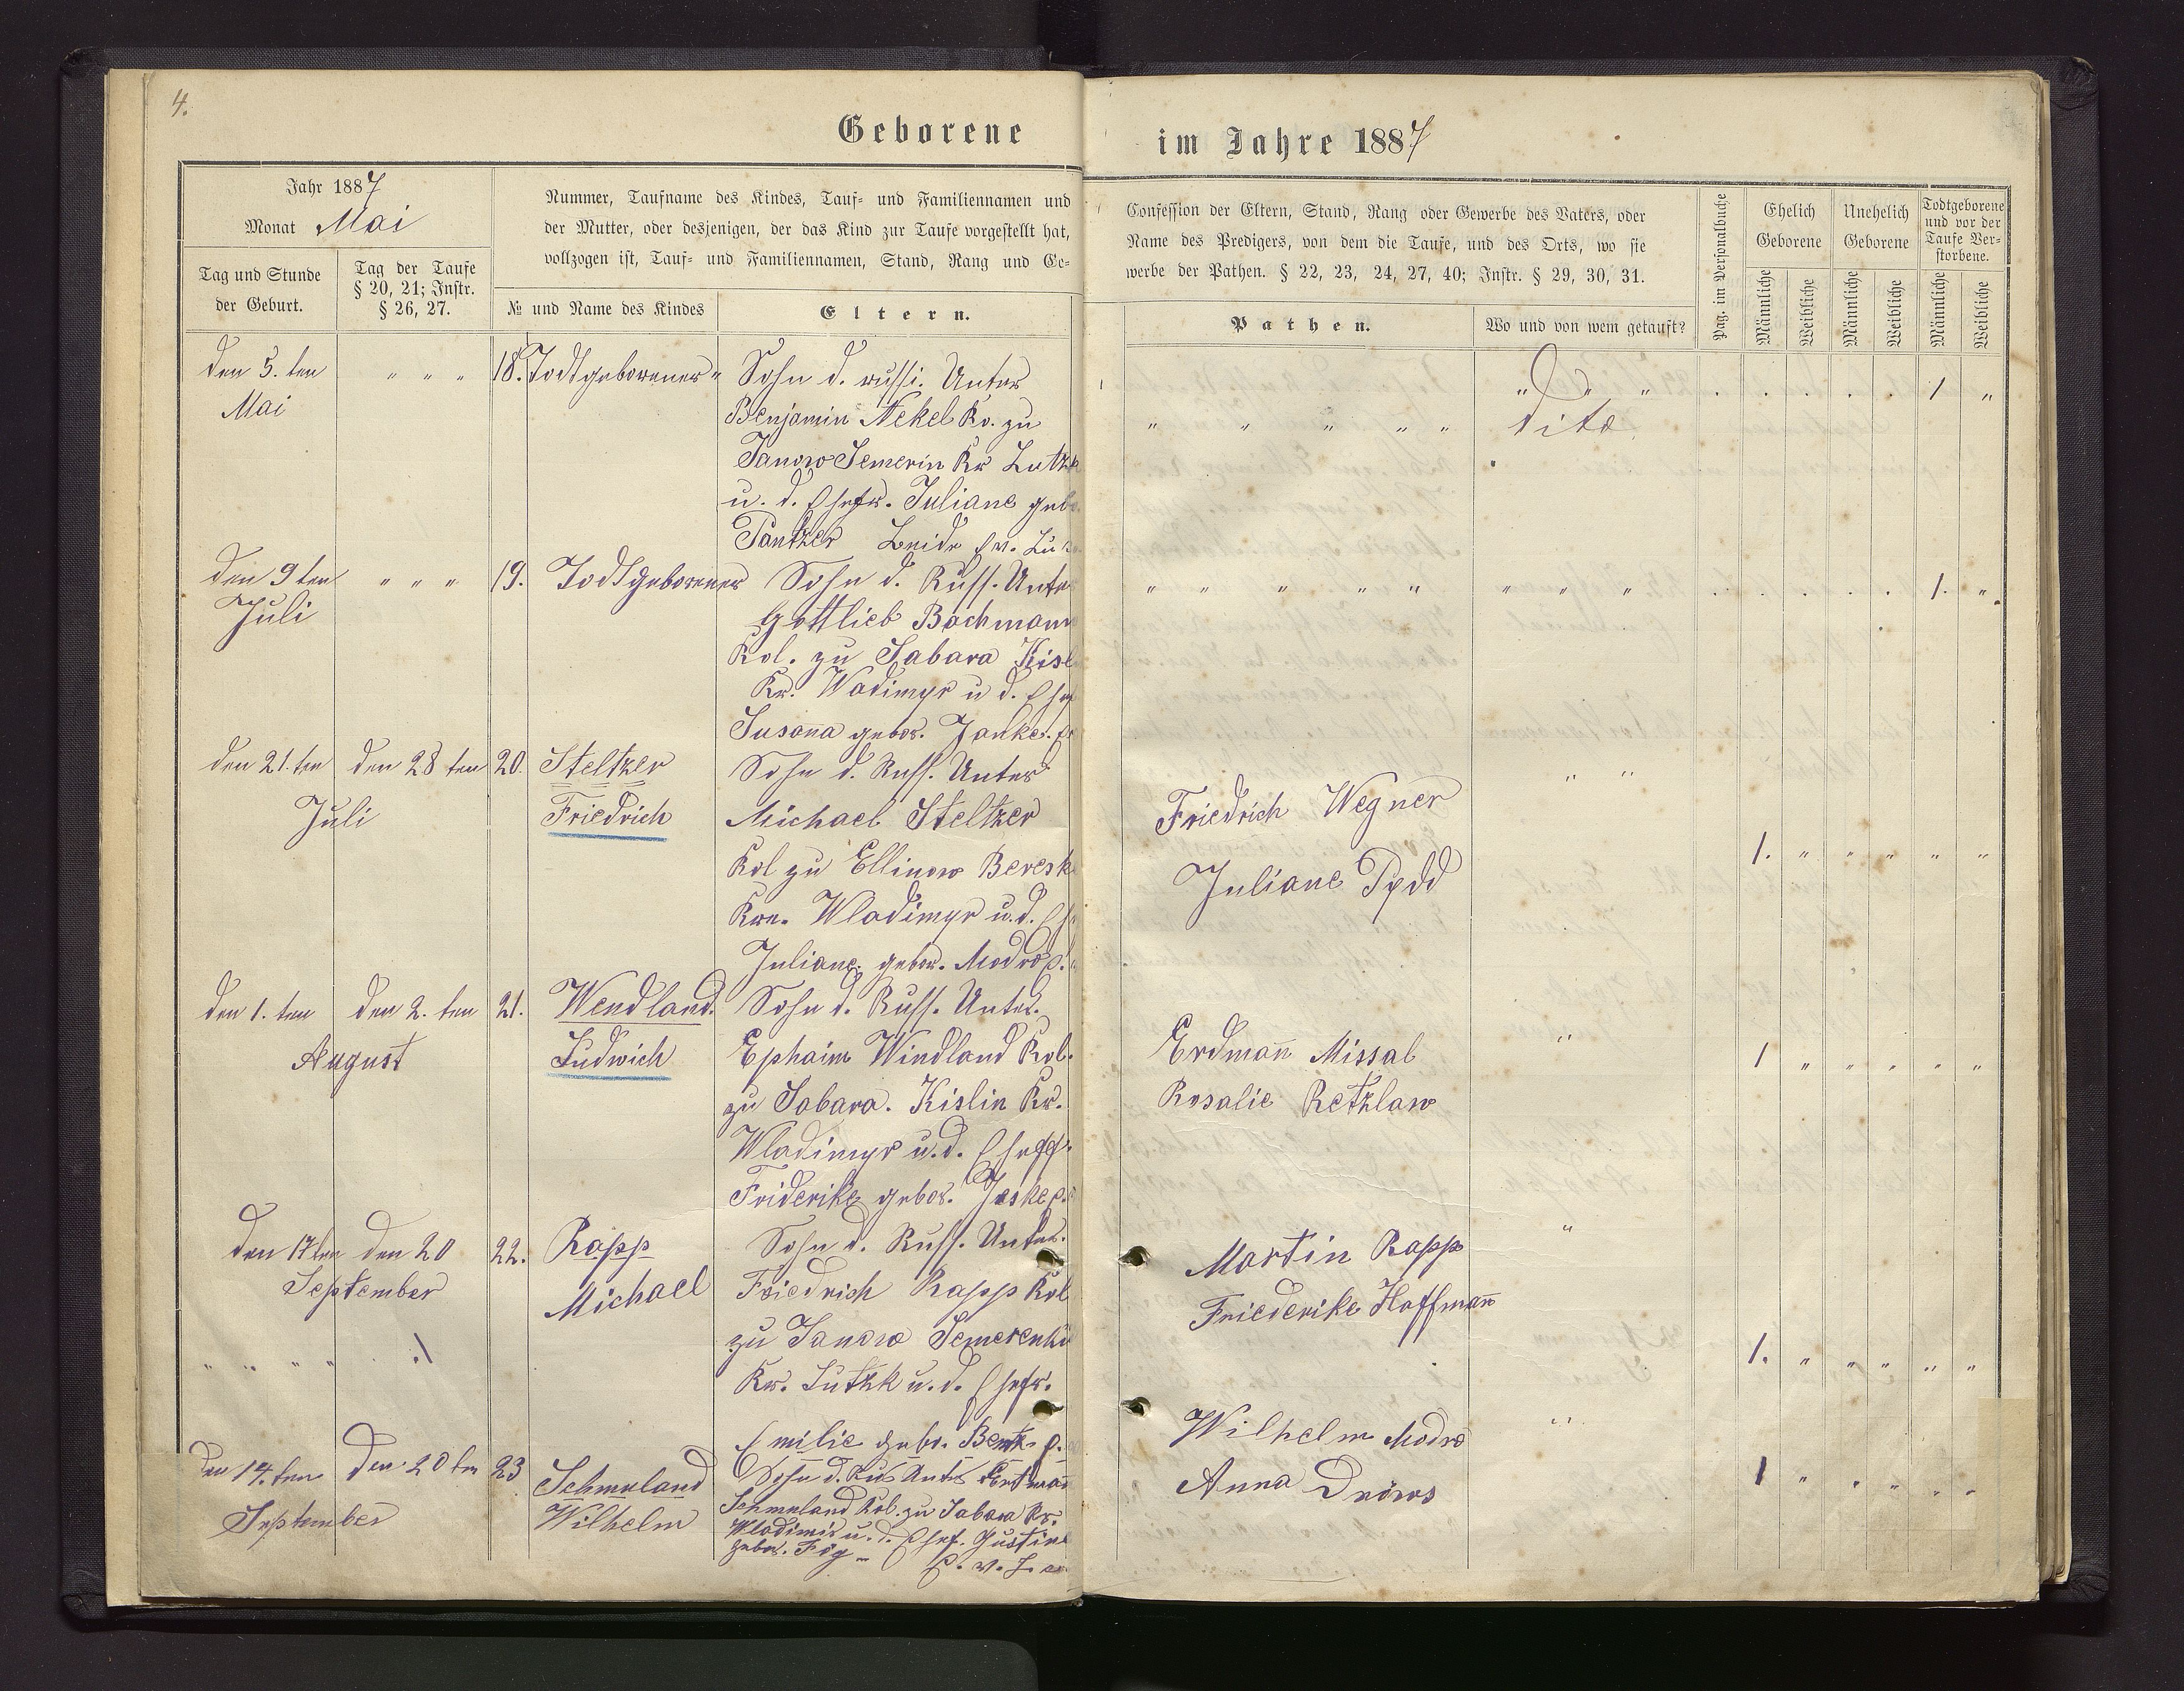 4.
Geborene
im Jahre 1887
Jahr 1887
Monat Mai
Tag und Stunde
der Geburt.
Tag der Taufe
§ 20, 21; Instr.
§ 26, 27.
Nummer, Taufname des Kindes, Tauf- und Familiennamen und
der Mutter, oder desjenigen, der das Kind zur Taufe vorgestellt hat,
vollzogen ist, Tauf- und Familiennamen, Stand, Rang und Ge-
№ und Name des Kindes
Eltern.
Confession der Eltern, Stand, Rang oder Gewerbe des Vaters, oder
Name des Predigers, von dem die Taufe, und des Orts, wo sie
werbe der Pathen. § 22, 23, 24, 27, 40; Instr. § 29, 30, 31.
Pathen.
Wo und von wem getauft?
Pag. im Personalbuche
Ehelich
Geborene
Unehelich
Geborene
Todtgeborene
und vor der
Taufe Ver-
storbene.
Männliche
Weibliche
Männliche
Weibliche
Männliche
Weibliche
den 5. ten
Mai
" " "
18. Todtgeborener "
Sohn d. russi. Unter
Benjamin Nekel Ko. zu
Janow Semerin Kr Lutzk
u. d. Ehefr. Juliane geb
Pantzer Beide ev. Lu
" " " " "
" " "
dito
1 "
den 9 ten
Juli
" " "
19. Todtgeborener
Sohn d. Russ. Unte
Gottlieb Bachmann
Kol. zu Sabara Kisl
Kr. Wadimyr u d. Ehe
Susanna gebor. Janke.
" " " " "
" " "
1. "
den 21. ten
Juli
den 28 ten
20. Steltzer
Friedrich
Sohn d. Russ. Unter
Michael Steltzer
Kol zu Ellinow Beresk
Kre. Wladimyr u. d. Eh
Juliane gebor. Modro e.
Friedrich Wegner
Juliane Pydd
" "
1. " " " " "
den 1. ten
August
den 2. ten
21. Wendland.
Ludwich
Sohn d. Russ. Unter.
Ephaim Windland Kol.
zu Sabara. Kislin Kr.
Wladimyr u. d. Ehefr.
Friderike gebor. Jeske e.
Erdmann Missal
Rosalie Retzlaw
"
1 " " " " "
den 17 ten
September
den 20
22. Rapp
Michael
Sohn d. Russ. Unter.
Friedrich Rapp Kol
zu Janow Semerenki
Kr. Lutzk u. d. Ehefr.
Emilie gebo. Bentz e.
Martin Rapp
Friederike Hoffmann
"
1. " " " " "
den 14. ten
September
den 20 ten
23 Schmuland
Wilhelm
Sohn d. Rus Unter
Schmuland Kol. zu Sabara Kr.
Wladimir u. d. Ehef. Gustine
gebor. Fög
Wilhelm Modro
Anna Dröws
" "
1 " " " " "